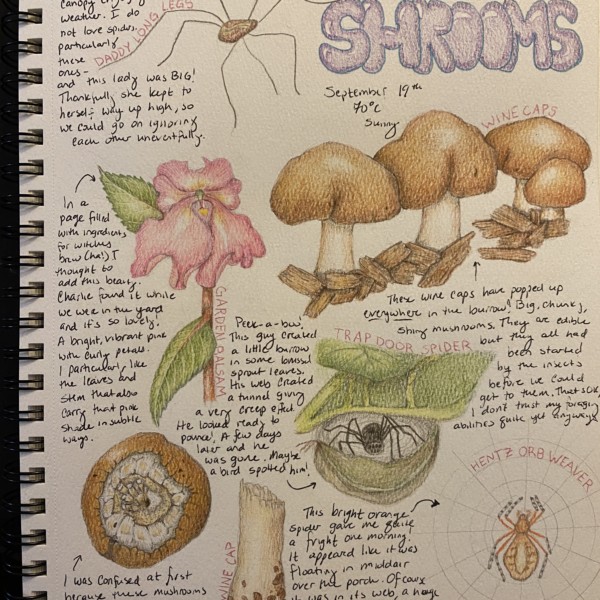 canopy enjoying
weather. I do
not love spiders
particularly
these
ones-
and this lady was BIG!
Thankfully she kept to
herself way up high, so
we could go on ignoring
each other uneventfully.
DADDY LONG LEGS
SHROOMS
September 19th
70°F
Sunny
WINE CAPS
These wine caps have popped up
everywhere in the burrow! Big, chunky,
shiny mushrooms. They are edible
but they all had
been started
by the insects
before we could
get to them. That's ok
I don't trust my foraging
abilities quite yet anyways
In a
page filled
with ingredients
for witches
brew (ha!) I
thought to
add this beauty.
Charlie found it while
we were in the yard
and it's so lovely!
A bright, vibrant pink
with curly petals.
I particularly like
the leaves and
stem that also
carry that pink
shade in subtle
ways.
GARDEN BALSAM
Peek-a-boo!
This guy created
a little burrow
in some brussel
sprout leaves.
His web created
a tunnel giving
a very creepy effect.
He looked ready to
pounce! A few days
later and he
was gone. Maybe
a bird spotted him!
TRAP DOOR SPIDER
HENTZ ORB WEAVER
This bright orange
spider gave me quite
a fright one morning.
It appeared like it was
floating in midair
over the porch. Of course
it was in its web, a huge
WINE CAP
I was confused at first
because these mushrooms